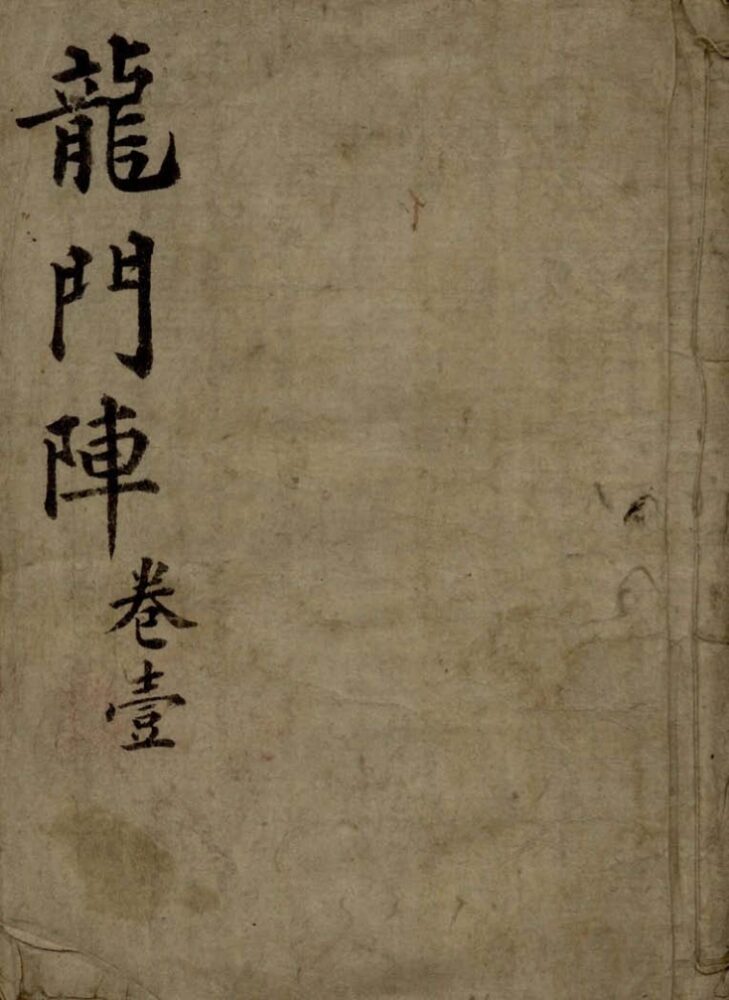 龍門陣
卷壹